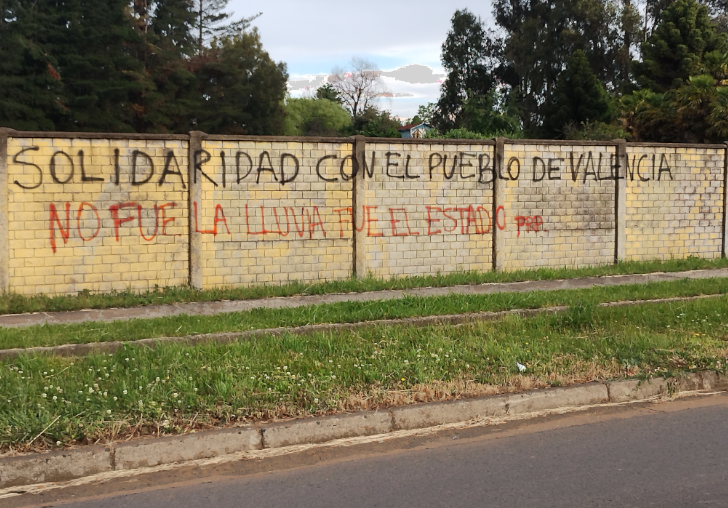 SOLIDARIDAD CON EL PUEBLO DE VALENCIA
NO FUE LA LLUVIA FUE EL ESTADO